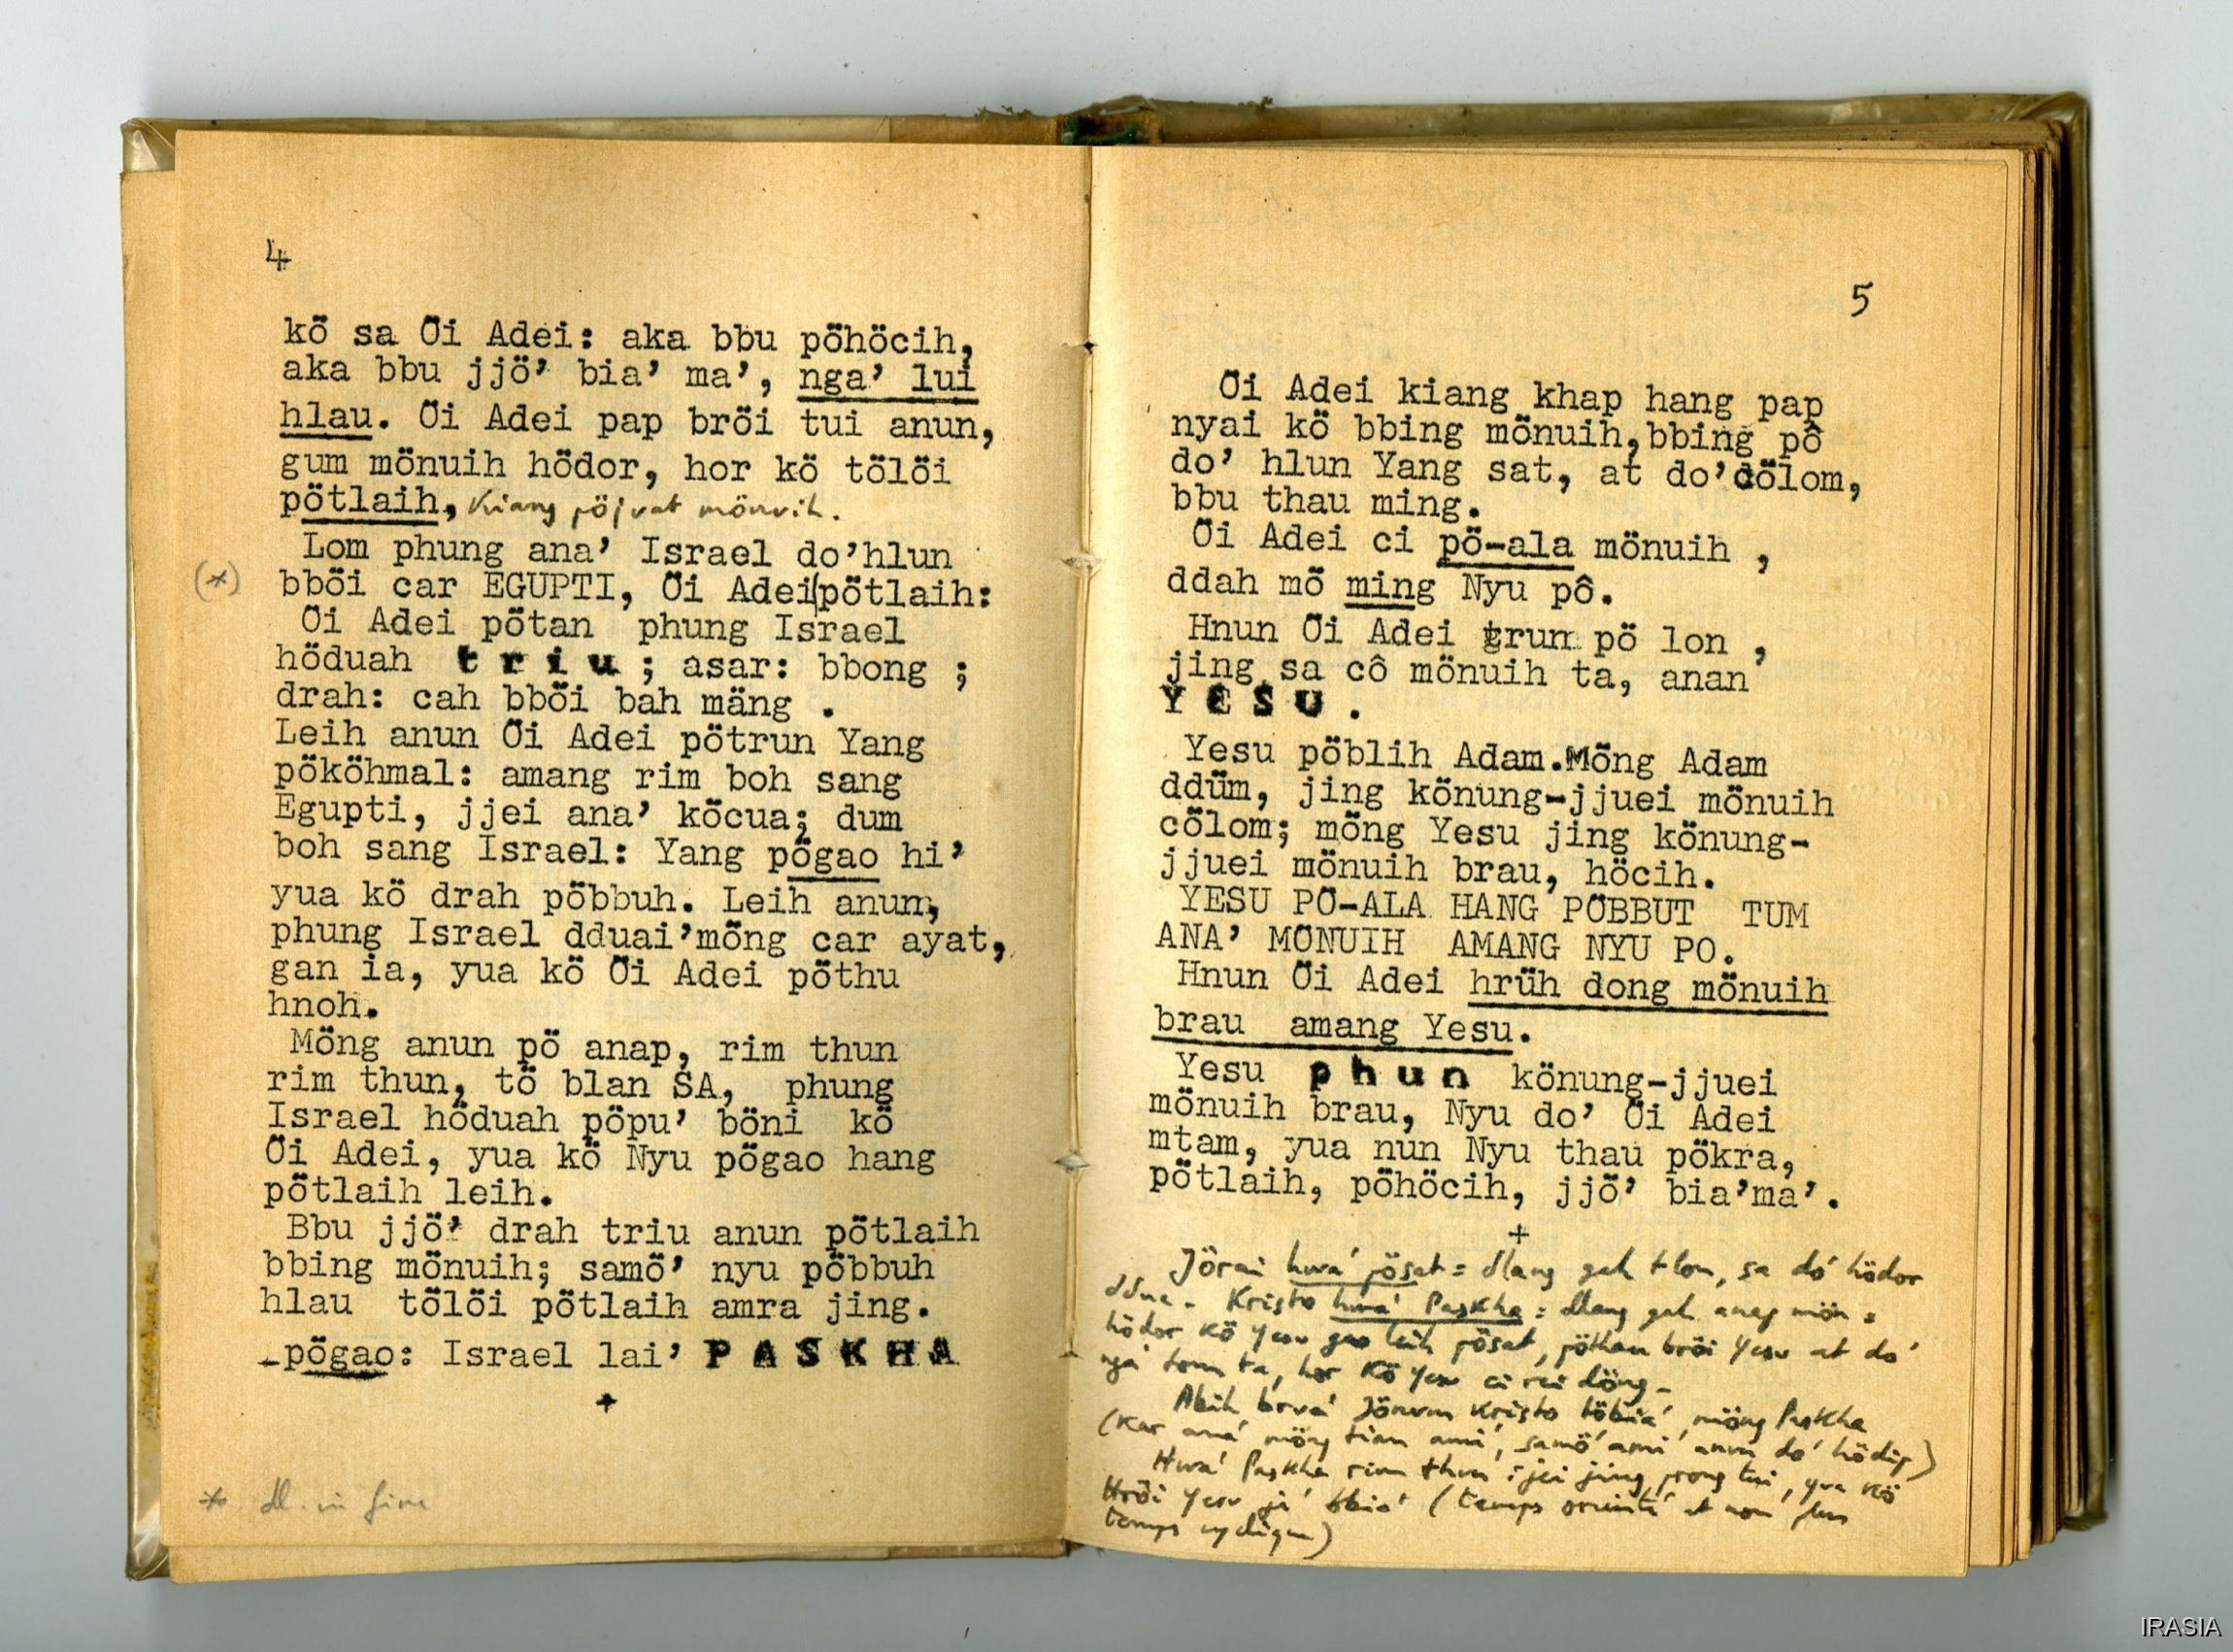 4
kö sa Öi Adei: aka bbu pöhöcih,
aka bbu jjö’ bia’ ma’, nga’ lui
hlau. Öi Adei pap bröi tui anun,
gum mönuih hödor, hor kö tölöi
pötlaih, kiang pöjuat mönuih.
Lom phung ana’ Israel do’hlun
(*) bböi car EGUPTI, Öi Adei pötlaih:
Öi Adei pötan phung Israel
höduah triu ; asar: bbong ;
drah: cah bböi bah mäng .
Leih anun Öi Adei pötrun Yang
pököhmal: amang rim boh sang
Egupti, jjei ana’ köcua; dum
boh sang Israel: Yang pögao hi’
yua kö drah pöbbuh. Leih anun,
phung Israel dduai’möng car ayat,
gan ia, yua kö Öi Adei pöthu
hnoh.
Möng anun pö anap, rim thun
rim thun, tö blan SA, phung
Israel höduah pöpu’ böni kö
Öi Adei, yua kö Nyu pögao hang
pötlaih leih.
Bbu jjö’ drah triu anun pötlaih
bbing mönuih; samö’ nyu pöbbuh
hlau tölöi pötlaih amra jing.
-pögao: Israel lai’ PASKHA
+
* dl. in fine
5
Öi Adei kiang khap hang pap
nyai kö bbing mönuih,bbing pô
do’ hlun Yang sat, at do’cölom,
bbu thau ming.
Öi Adei ci pö-ala mönuih ,
ddah mö ming Nyu pô.
Hnun Öi Adei trun pö lon ,
jing sa cô mönuih ta, anan
YESU .
Yesu pöblih Adam.Möng Adam
ddüm, jing könung-jjuei mönuih
cölom; möng Yesu jing könung-
jjuei mönuih brau, höcih.
YESU PÖ-ALA HANG PÖBBUT TUM
ANA’ MÖNUIH AMANG NYU PO.
Hnun Öi Adei hrüh dong mönuih
brau amang Yesu.
Yesu phun könung-jjuei
mönuih brau, Nyu do’ Öi Adei
mtam, yua nun Nyu thau pökra,
pötlaih, pöhöcih, jjö’ bia’ma’.
+
Jörai hua’ pösat = dlang gah tlon, sa do’ hödor
Kristo hua’ Paskha = dlang gah anap mön =
hödor kö Yesu gao leih pösat, pöthau bröi Yesu at do’
nga’ tom ta, hor kö Yesu ci rai döng.
Abih brua’ Jönum Kristo töbia’ möng Paskha
(kar ana’ möng tian ami’, samö’ ami’ anun do’ hödip)
Hua’ Paskha rim thun : jei jing prong tui, yua kö
Hröi Yesu töbia’ (temps orienté et non plus
temps cyclique)
IRASIA